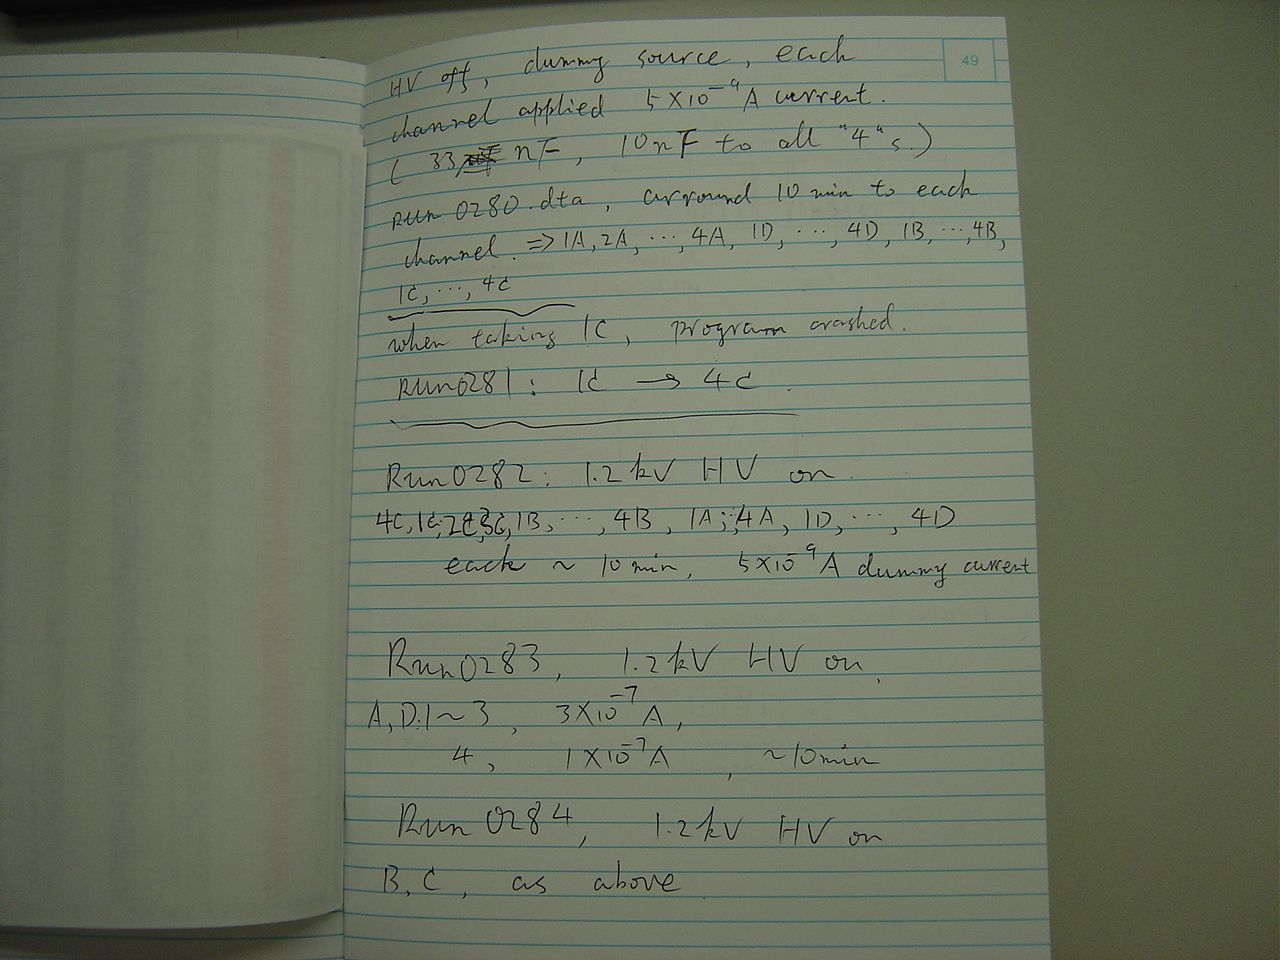 49
HV off, dummy source, each
channel applied 5×10⁻⁹A current.
( 33 nF, 10nF to all "4"s.)
Run 0280.dta, arround 10 min to each
channel. => 1A, 2A, ..., 4A, 1D, ..., 4D, 1B, ..., 4B,
1C, ..., 4C
when taking 1C, program crashed.
Run0281: 1C → 4C.
Run0282: 1.2kV HV on.
4C, 1C, 2C, 3C, 1B, ..., 4B, 1A, .., 4A, 1D, ..., 4D
each ~ 10 min, 5×10⁻⁹A dummy current
Run0283, 1.2kV HV on,
A, D: 1~3, 3×10⁻⁷A,
4, 1×10⁻⁷A, ~10min
Run 0284, 1.2kV HV on
B, C, as above